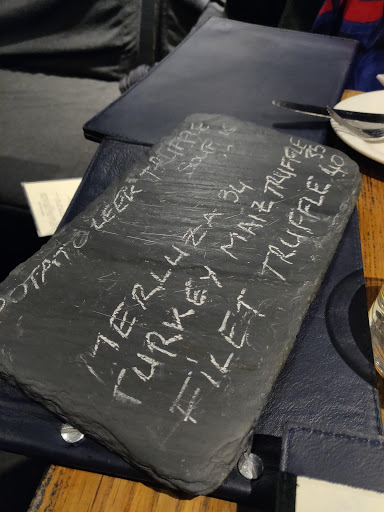 POTATO LEEK TRUFFLE
SOUP
MERLUZA 34
TURKEY MAIZ TRUFFLE 35
FIKET TRUFFLE 40